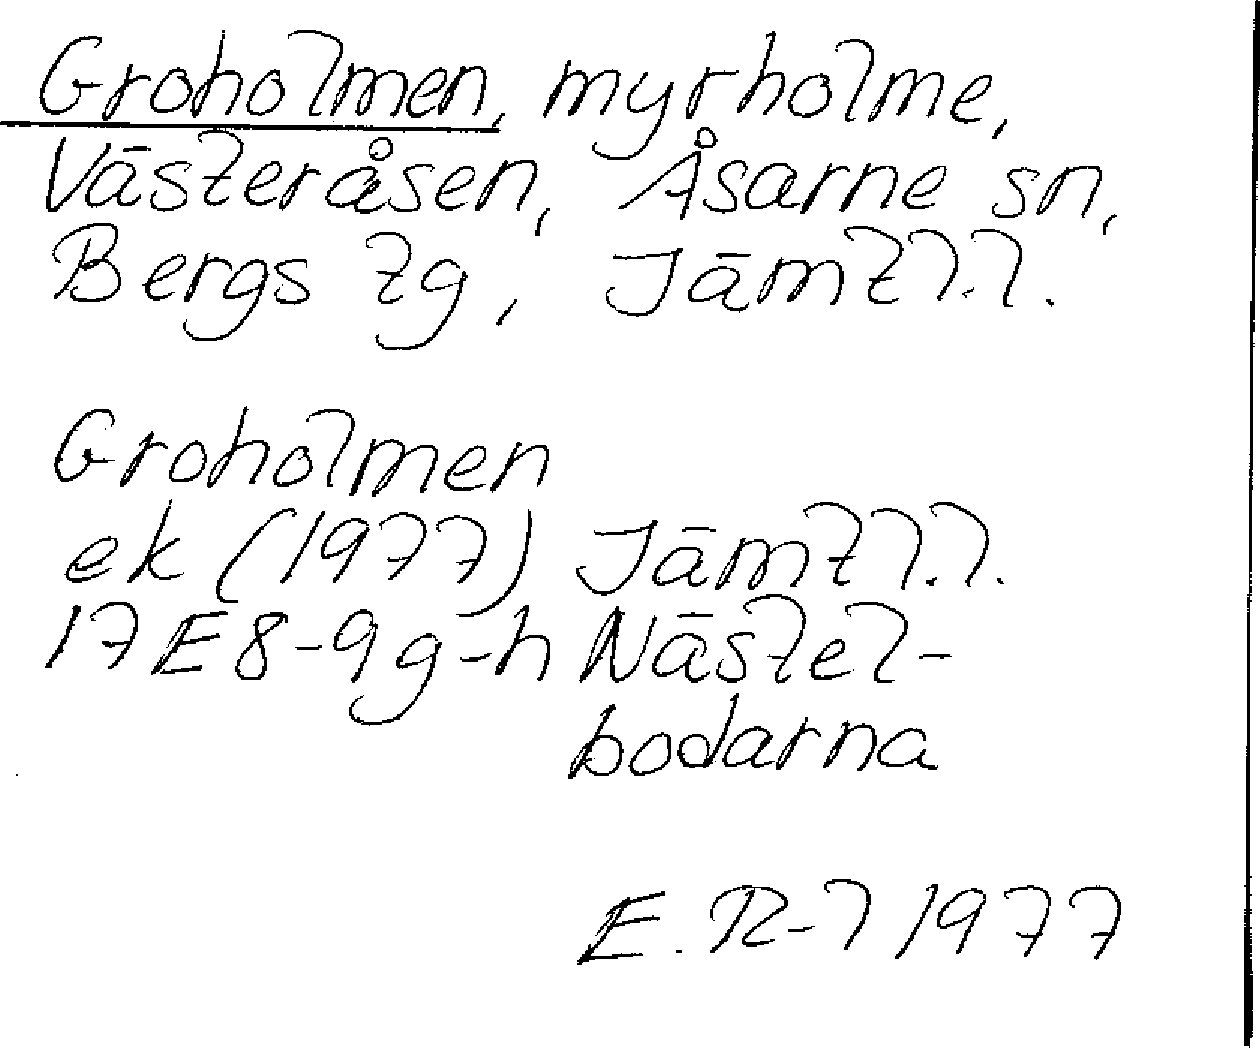 Groholmen, myrholme,
Västeråsen, Åsarne sn,
Bergs tg, Jämtl.l.
Groholmen
ek (1977) Jämtl.l.
17E8-9g-h Nästel-
bodarna
E. R-l 1977